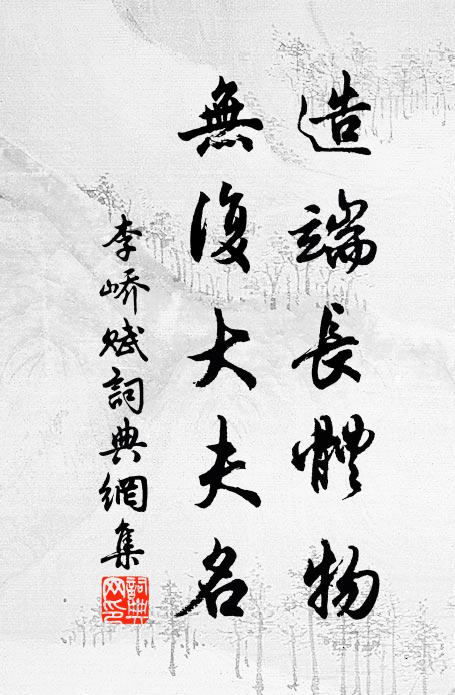 造端長體物
無復大夫名
李嶠賦詞典網集
詞典
网印